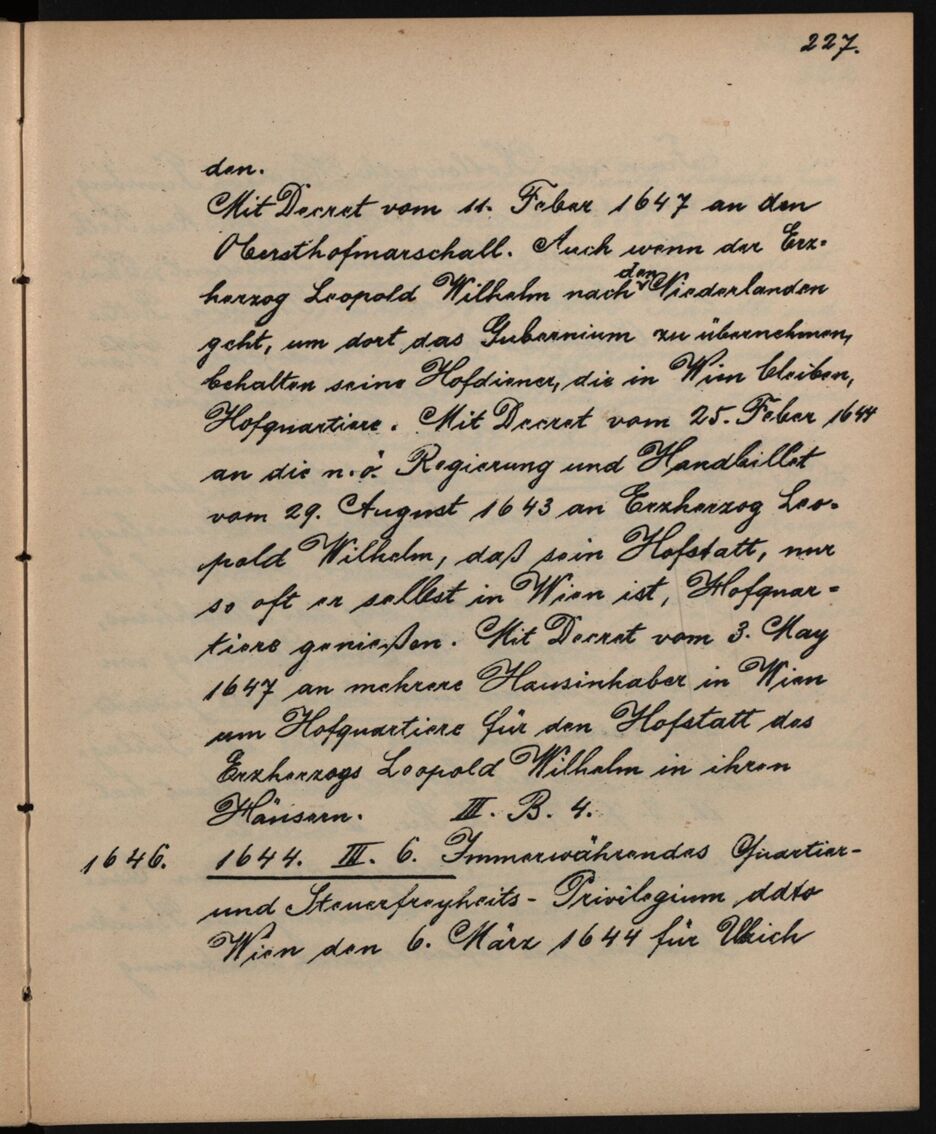 227.
den.
Mit Decret vom 11. Feber 1647 an den
Obersthofmarschall. Auch wenn der Erz-
herzog Leopold Wilhelm nach den Niederlanden
geht, um dort das Gubernium zu übernehmen,
behalten seine Hofdiener, die in Wien bleiben,
Hofquartiere. Mit Decret vom 25. Feber 1644
an die n.ö. Regierung und Handbillet
vom 29. August 1643 an Erzherzog Leo-
pold Wilhelm, daß sein Hofstatt, nur
so oft er selbst in Wien ist, Hofquar-
tiere genießen. Mit Decret vom 3. May
1647 an mehrere Hausinhaber in Wien
um Hofquartiere für den Hofstatt des
Erzherzogs Leopold Wilhelm in ihren
Häusern. III. B. 4.
1646. 1644. III. 6. Immerwährendes Quartier-
und Steuerfreyheits-Privilegium ddto
Wien den 6. März 1644 für Ulrich